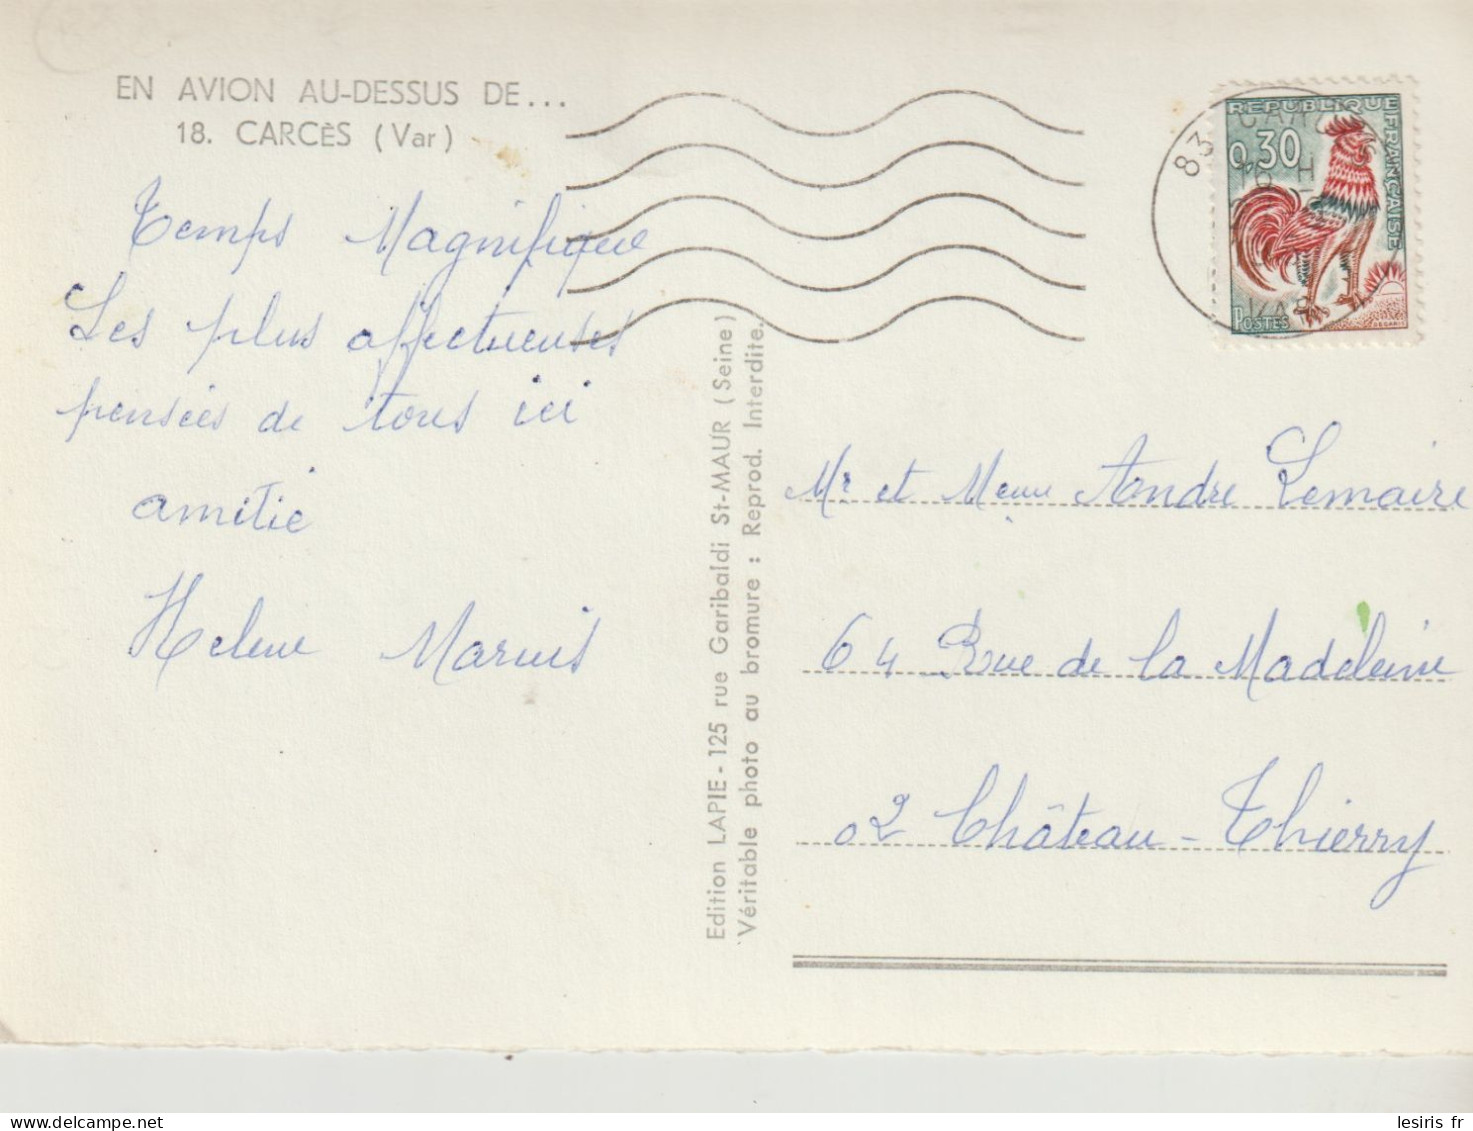 EN AVION AU-DESSUS DE...
18. CARCÈS (Var)
Temps Magnifique
Les plus affectueuses
pensées de tous ici
amitié
Helene
Edition LAPIE - 125 rue Garibaldi St-MAUR (Seine)
Véritable photo au bromure : Reprod. Interdite.
83
REPUBLIQUE FRANÇAISE
0,30
POSTES
DECARIS
VAR
Mr et Mme Andre Lemaire
64 Rue de la Madeleine
02 Château-Thierry
lesiris fr